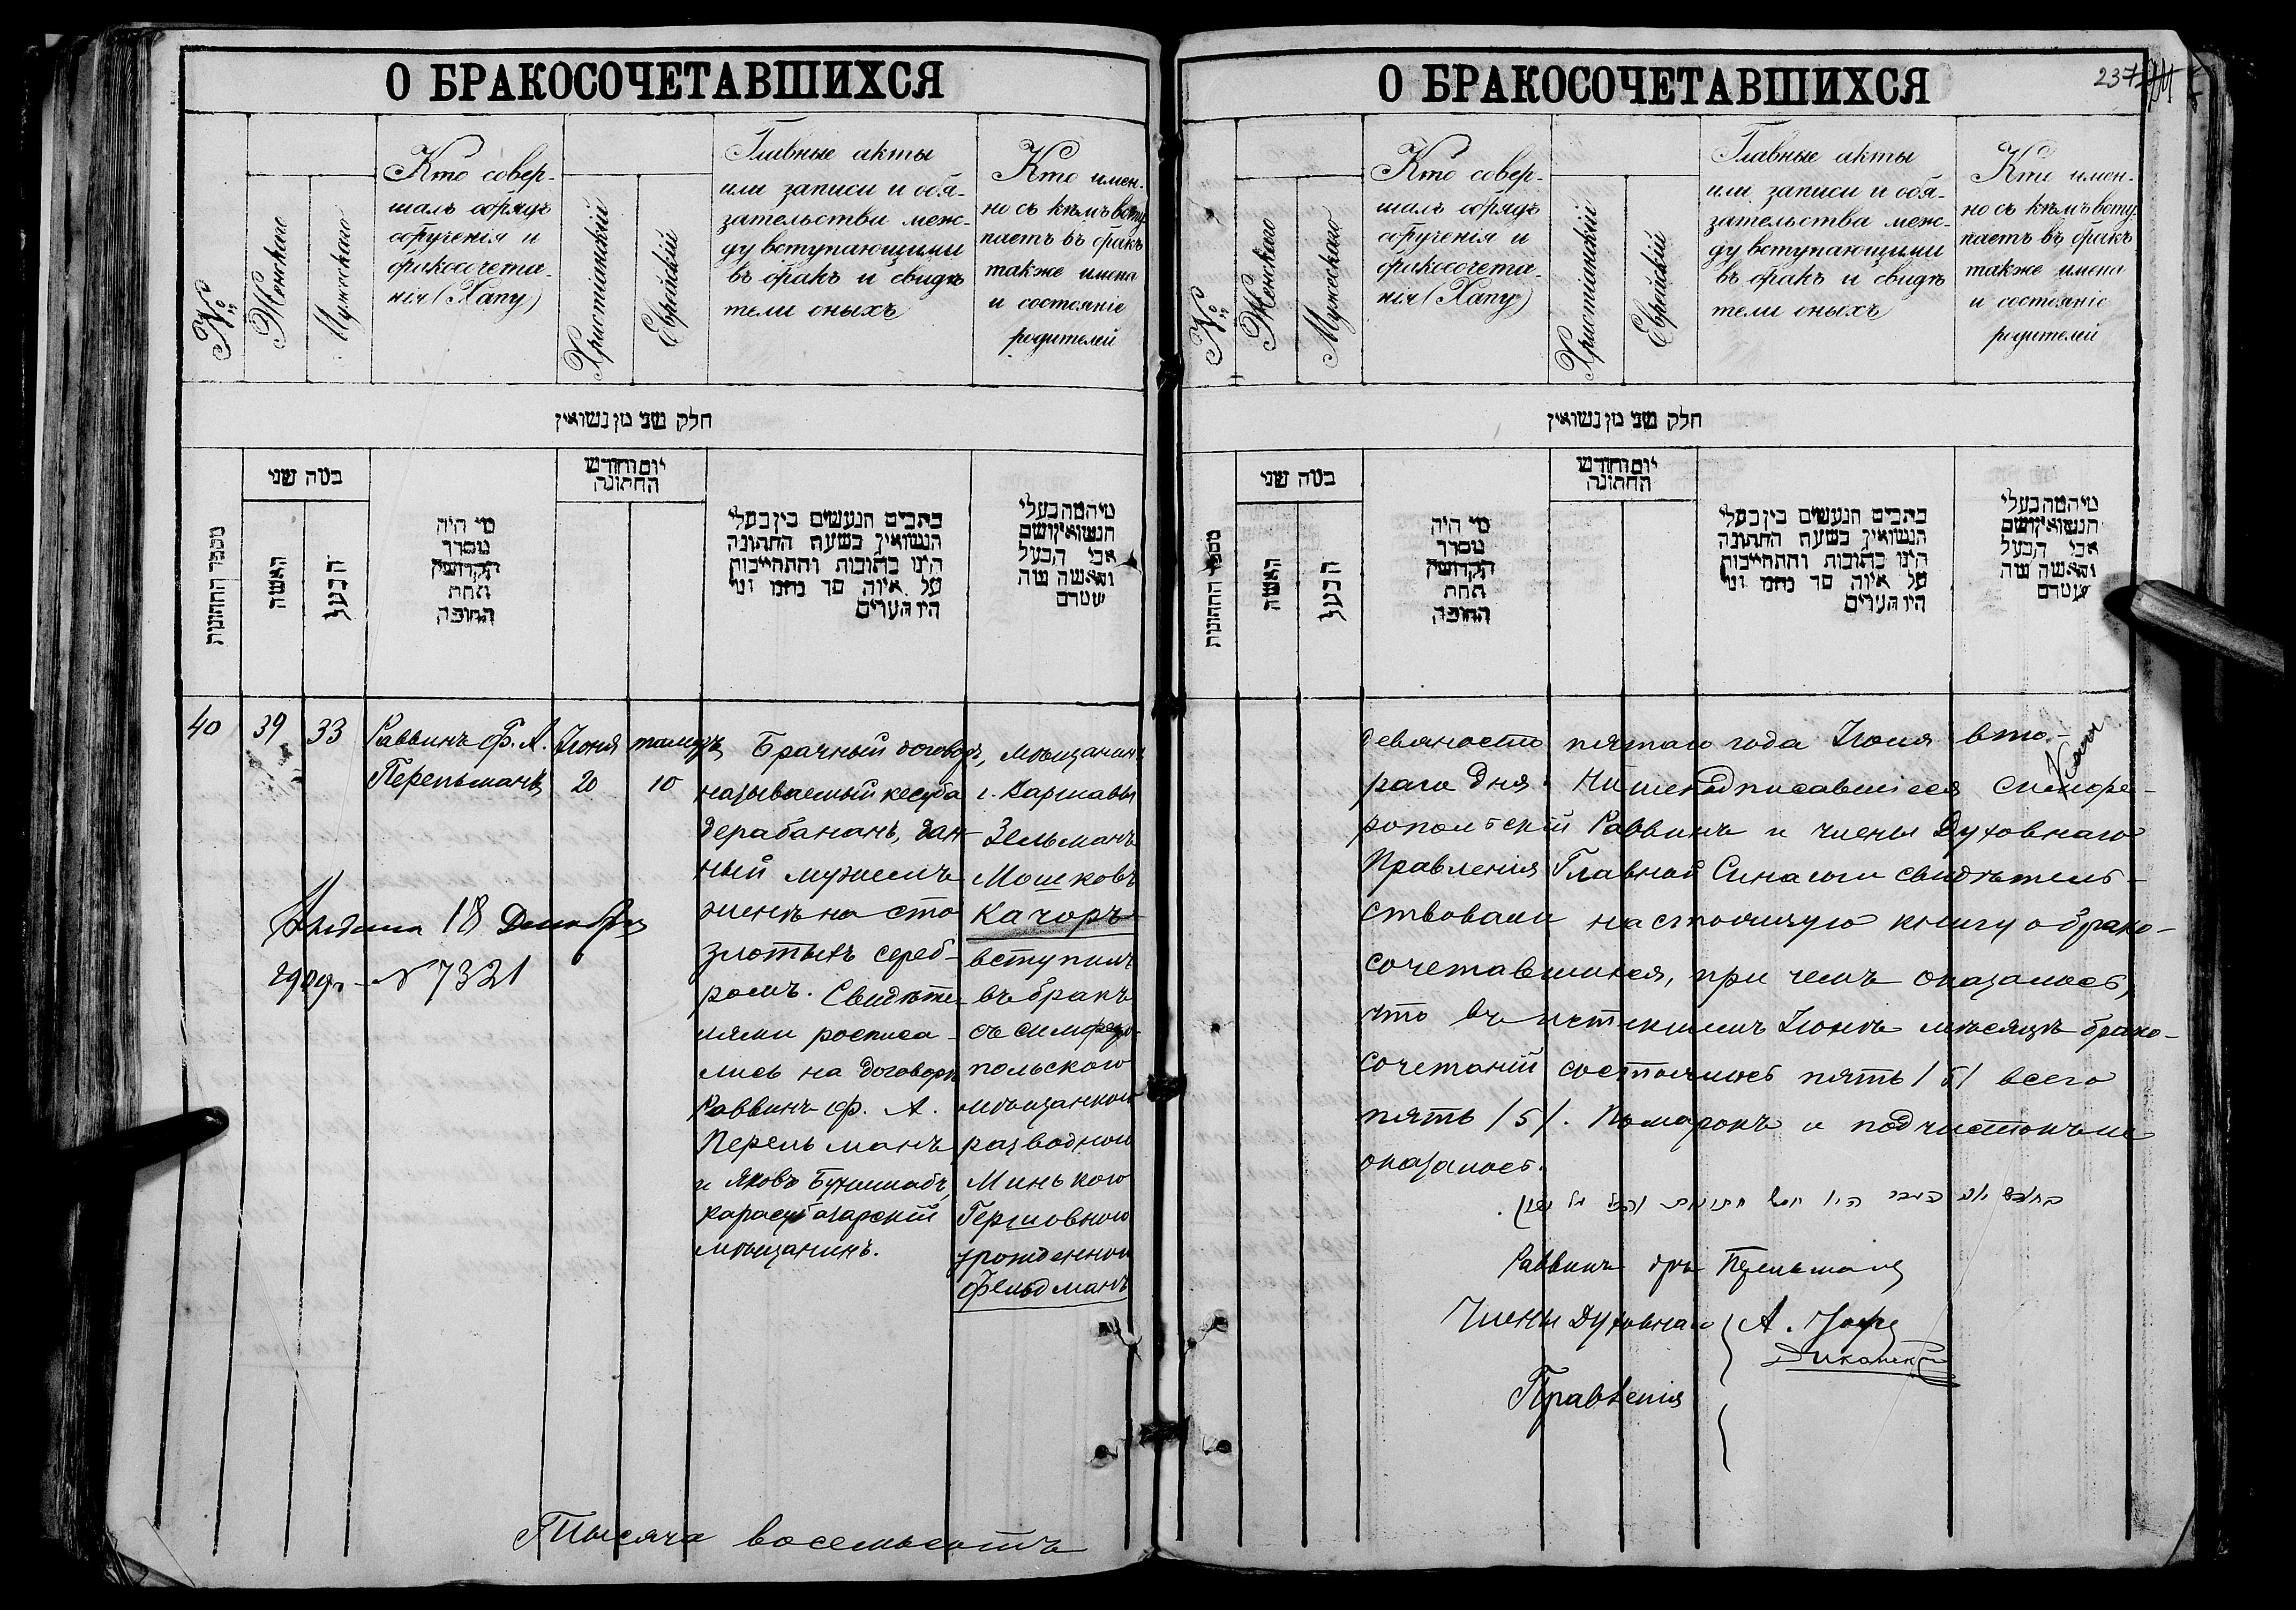 О БРАКОСОЧЕТАВШИХСЯ
№
Женскаго
Мужескаго
Кто совер-
шалъ обрядъ
обрученія и
бракосочета-
нія (Хапу)
Христіанскій
Еврейскій
Главные акты
или записи и обя-
зательства меж-
ду вступающими
въ бракъ и свидѣ
тели оныхъ
Кто имен-
но съ кѣмъ всту
паетъ въ бракъ
также имена
и состояніе
родителей
חלק שני מן נשואין
מספר החתונות
כמה שני
האשה
הבעל
מי היה
מסדר
הקדושין
תחת
החופה
יום וחודש
החתונה
כתבים הנעשים בין בעלי
הנשואין בשעת החתונה
היינו כתובות והתחייבות
על איזה סך נחתמו ומי
היו העדים
מי המה בעלי
הנשואין ושם
אבי הבעל
והאשה ומה
שטרם
40
39
33
Раввинъ Ф. А.
Перельманъ
Іюня
20
тамузъ
10
Брачный договоръ,
называемый кесуба
дерабананъ, дан-
ный мужемъ
женѣ на сто
злотыхъ сереб-
ромъ. Свидѣте-
лями росписа-
лись на договорѣ
Раввинъ Ф. А.
Перельманъ
и Яковъ
карасубазарскій
мѣщанинъ.
мѣщанинъ
г. Варшавы
Зельманъ
Мошковъ
Качоръ
вступилъ
въ бракъ
съ симферо-
польскою
мѣщанкою
разводною
Минькою
Гершовною
урожденною
Фельдманъ
Выдана 18 Декабря
№ 7321
Тысяча восемьсотъ
О БРАКОСОЧЕТАВШИХСЯ
237
№
Женскаго
Мужескаго
Кто совер-
шалъ обрядъ
обрученія и
бракосочета-
нія (Хапу)
Христіанскій
Еврейскій
Главные акты
или записи и обя-
зательства меж-
ду вступающими
въ бракъ и свидѣ
тели оныхъ
Кто имен-
но съ кѣмъ всту
паетъ въ бракъ
также имена
и состояніе
родителей
חלק שני מן נשואין
מספר החתונות
כמה שני
האשה
הבעל
מי היה
מסדר
הקדושין
תחת
החופה
יום וחודש
החתונה
כתבים הנעשים בין בעלי
הנשואין בשעת החתונה
היינו כתובות והתחייבות
על איזה סך נחתמו ומי
היו העדים
מי המה בעלי
הנשואין ושם
אבי הבעל
והאשה ומה
שטרם
девяносто пятаго года Іюля вто-
раго дня. Нижеподписавшіеся Симфе-
ропольскій Раввинъ и члены Духовнаго
Правленія Главной Синагоги свидѣтель-
ствовали настоящую книгу о брако-
сочетавшихся, при чемъ оказалось,
что въ истекшемъ Іюнѣ мѣсяцѣ брако-
сочетаній состоялось пять /5/ всего
пять /5/. Помарокъ и подчистокъ не
оказалось.
Раввинъ Перельманъ
Члены Духовнаго
Правленія